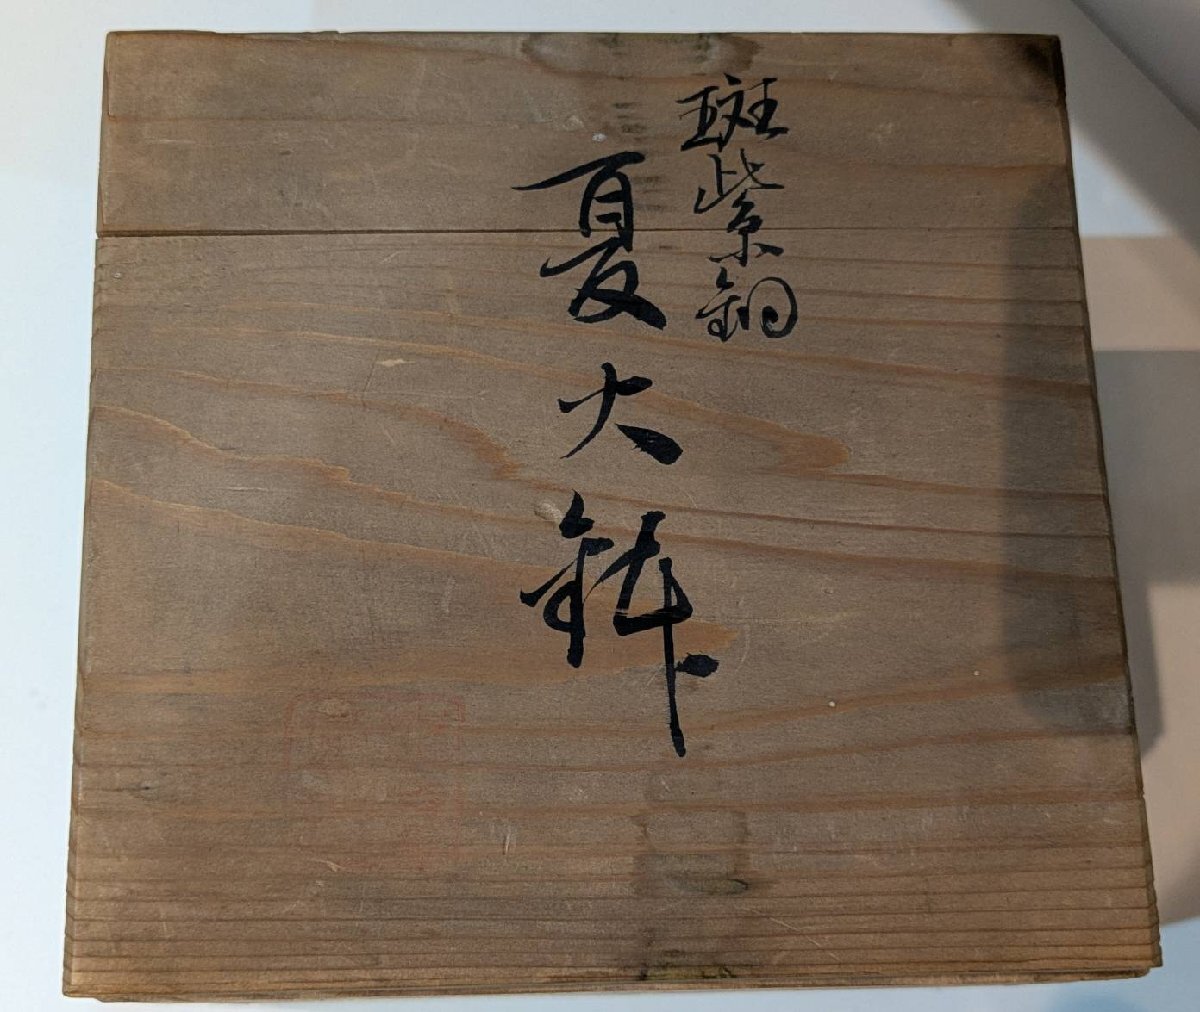 斑紫銅
夏火鉢